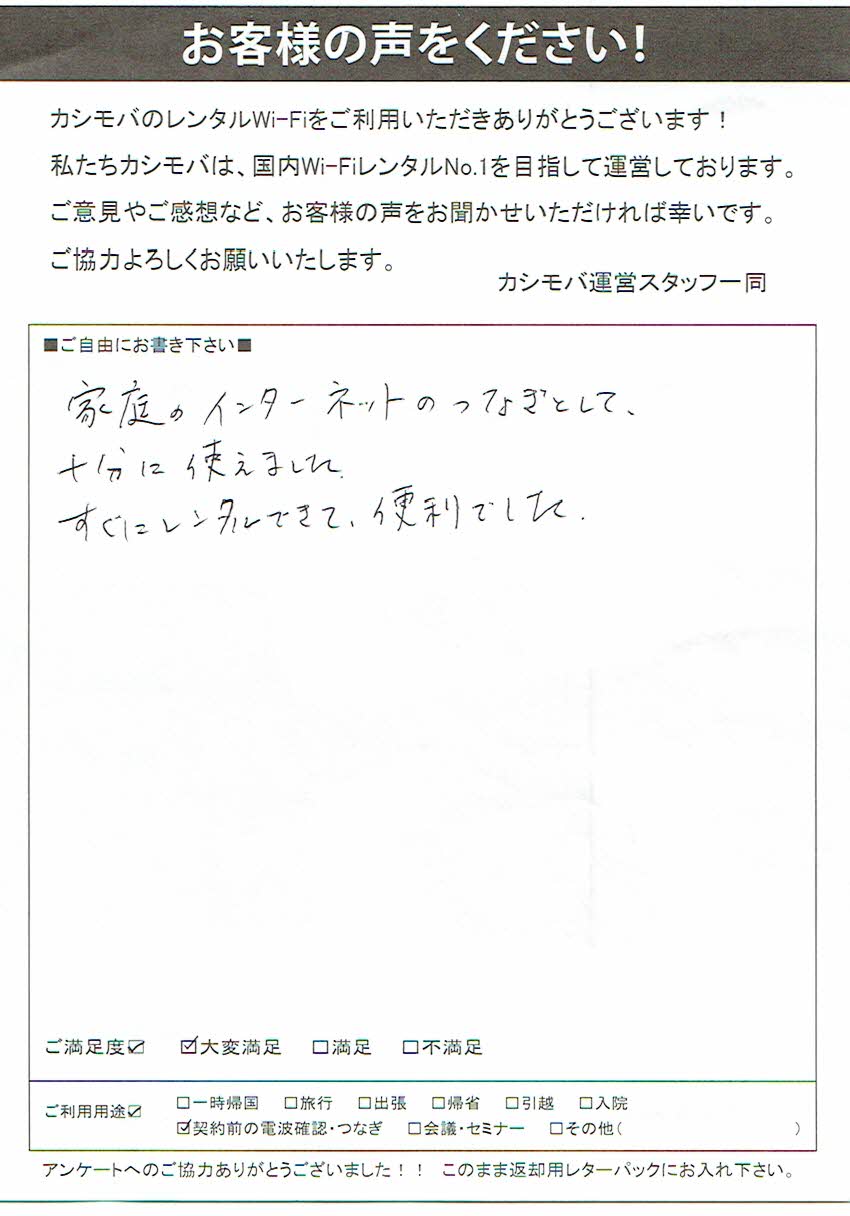 お客様の声をください!
カシモバのレンタルWi-Fiをご利用いただきありがとうございます！
私たちカシモバは、国内Wi-FiレンタルNo.1を目指して運営しております。
ご意見やご感想など、お客様の声をお聞かせいただければ幸いです。
ご協力よろしくお願いいたします。
カシモバ運営スタッフ一同
■ご自由にお書き下さい■
家庭のインターネットのつなぎとして、
十分に使えました。
すぐにレンタルできて、便利でした。
ご満足度☑ ☑大変満足 □満足 □不満足
ご利用用途☑ □一時帰国 □旅行 □出張 □帰省 □引越 □入院
☑契約前の電波確認・つなぎ □会議・セミナー □その他( )
アンケートへのご協力ありがとうございました！！ このまま返却用レターパックにお入れ下さい。